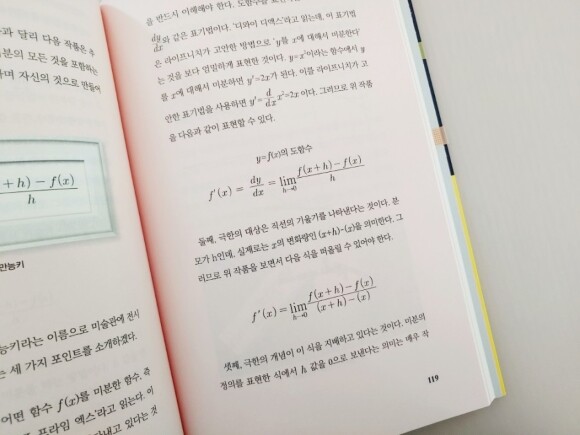 과 달리 다음 작품은 추
분의 모든 것을 포함하는
며 자신의 것으로 만들어
+ h) − f(x)
h
만능키
능키라는 이름으로 미술관에 전시
는 세 가지 포인트를 소개하겠다.
어떤 함수 f(x)를 미분한 함수, 즉
프라임 엑스'라고 읽는다. 이
나타내고 있다는 것
을 반드시 이해해야 한다. 도함수를
dy/dx와 같은 표기법이다. '디와이 디엑스'라고 읽는데, 이 표기법
은 라이프니치가 고안한 방법으로 'y를 x에 대해서 미분한다'
는 것을 보다 엄밀하게 표현한 것이다. y=x²이라는 함수에서 y
를 x에 대해서 미분하면 y'=2x가 된다. 이를 라이프니치가 고
안한 표기법을 사용하면 y'= d/dx x²=2x 이다. 그러므로 위 작품
을 다음과 같이 표현할 수 있다.
y=f(x)의 도함수
f'(x) = dy/dx = lim h→0 f(x+h)−f(x) / h
둘째, 극한의 대상은 직선의 기울기를 나타낸다는 것이다. 분
모가 h인데, 실제로는 x의 변화량인 (x+h)-(x)을 의미한다. 그
러므로 위 작품을 보면서 다음 식을 떠올릴 수 있어야 한다.
f'(x) = lim h→0 f(x+h)−f(x) / (x+h)−(x)
셋째, 극한의 개념이 이 식을 지배하고 있다는 것이다. 미분의
정의를 표현한 식에서 h 값을 0으로 보낸다는 의미는 매우 작
119